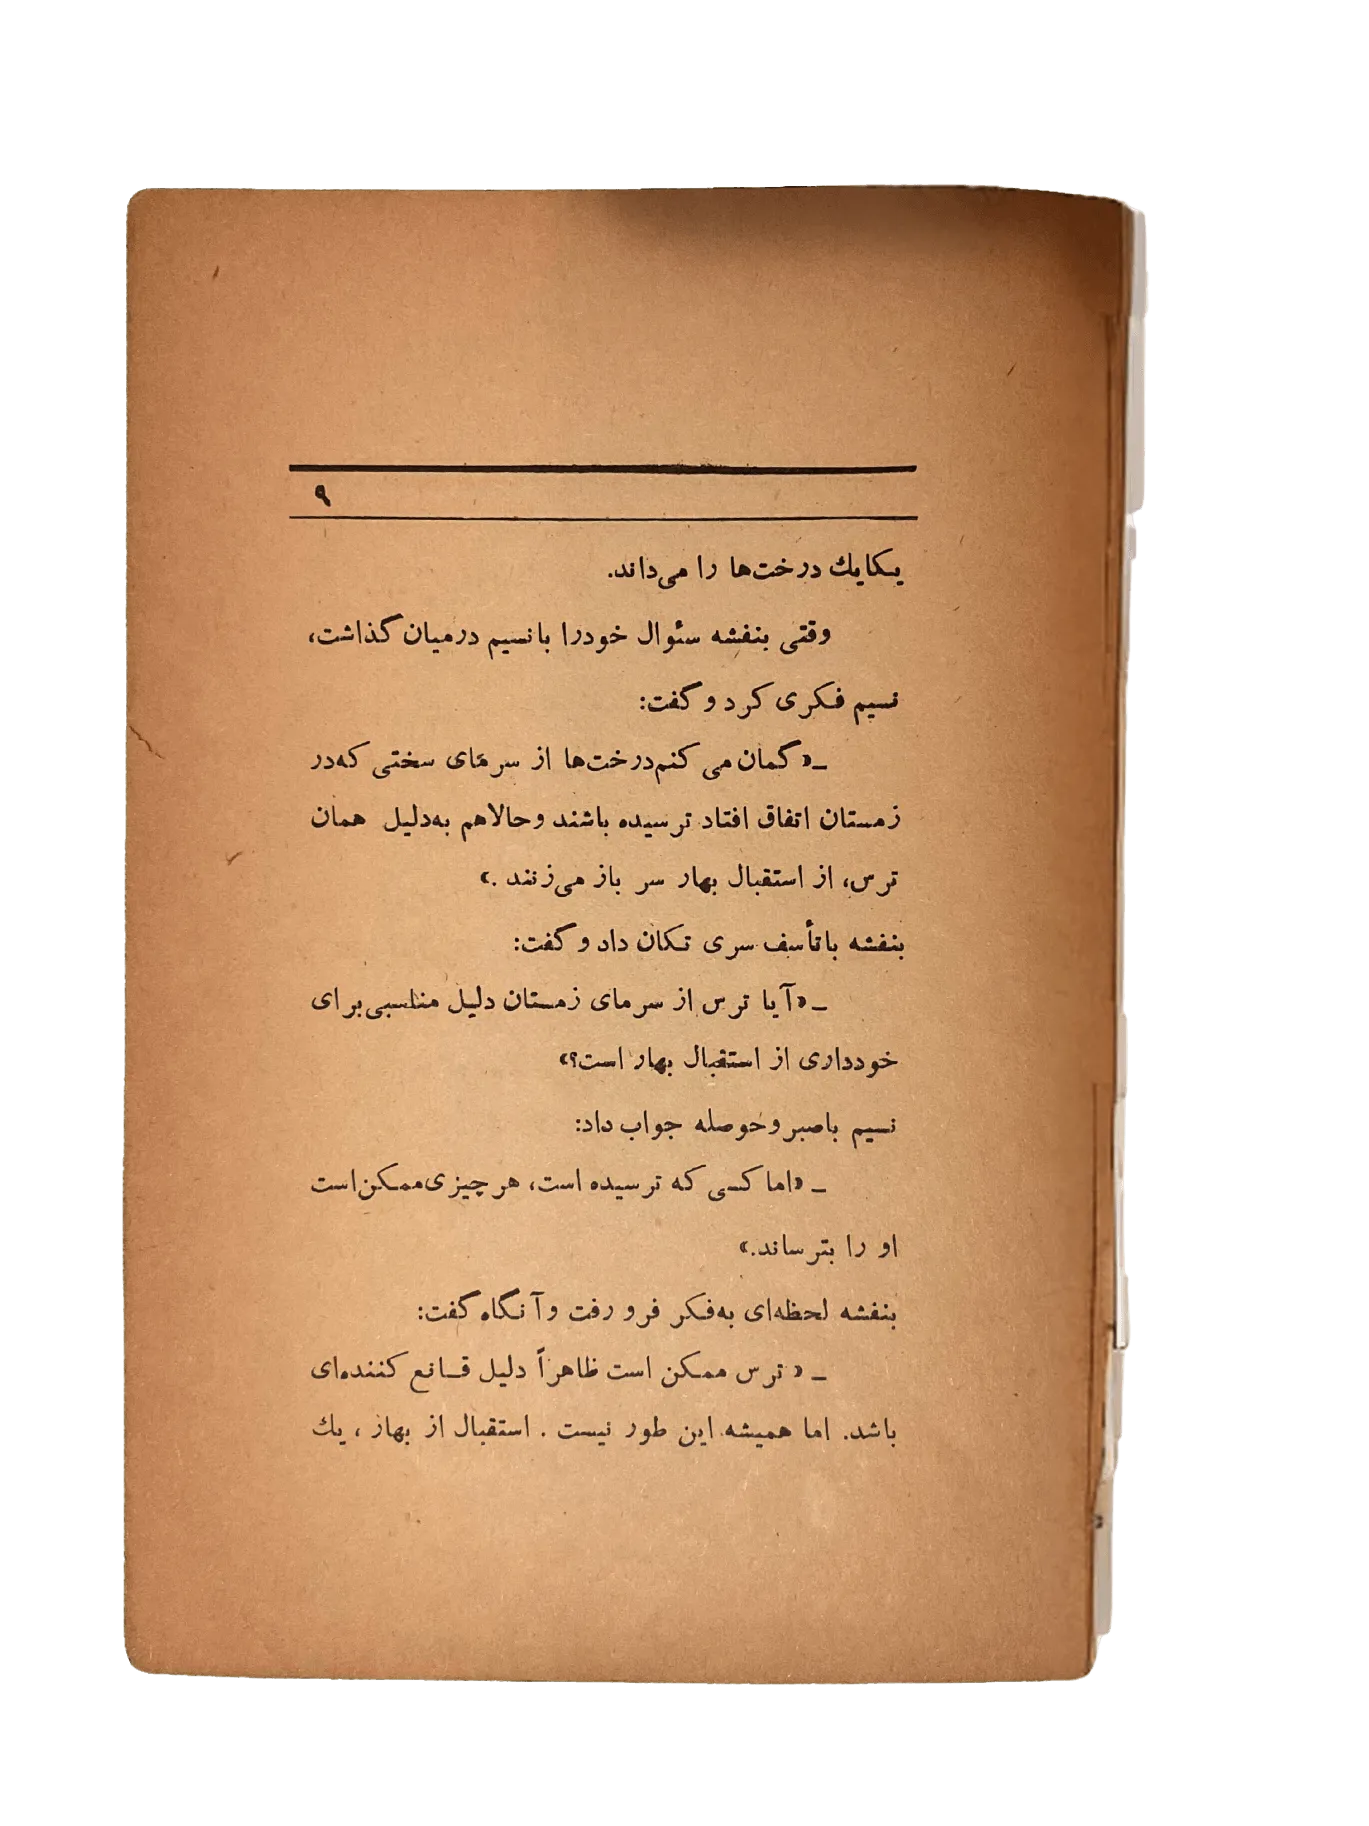 ۹
یکایك درخت‌ها را می‌داند.
وقتی بنفشه سئوال خودرا بانسیم درمیان گذاشت،
نسیم فکری کرد و گفت:
ـ «گمان می کنم‌درخت‌ها از سرمای سختی که‌در
زمستان اتفاق افتاد ترسیده باشند وحالاهم به‌دلیل همان
ترس، از استقبال بهار سر باز می‌زنند .»
بنفشه باتأسف سری تکان داد و گفت:
ـ «آیا ترس از سرمای زمستان دلیل مناسبی‌برای
خودداری از استقبال بهار است؟»
نسیم باصبروحوصله جواب داد:
ـ «اما کسی که ترسیده است، هرچیزی‌ممکن‌است
او را بترساند.»
بنفشه لحظه‌ای به‌فکر فرو رفت وآنگاه گفت:
ـ « ترس ممکن است ظاهراً دلیل قانع کننده‌ای
باشد. اما همیشه این طور نیست . استقبال از بهار ، یك